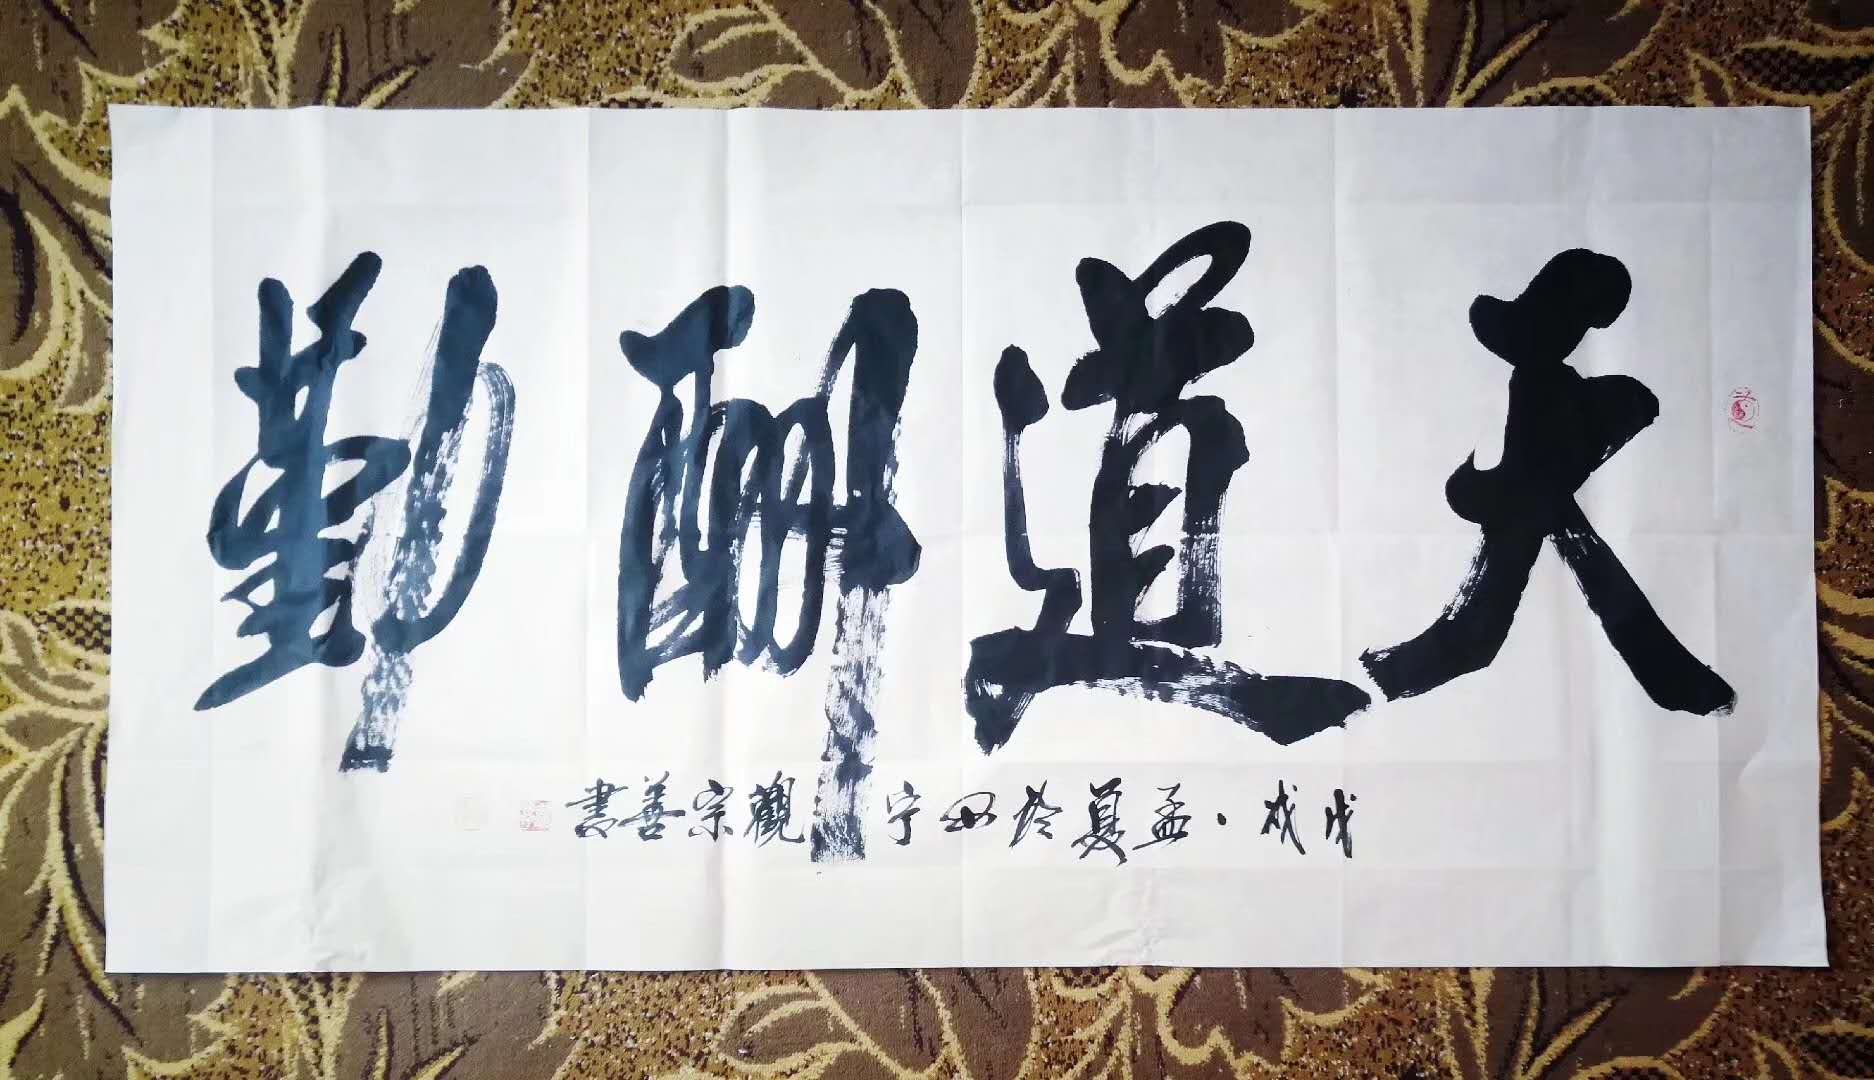 天道酬勤
戊戌·孟夏於西宁觀宗善書